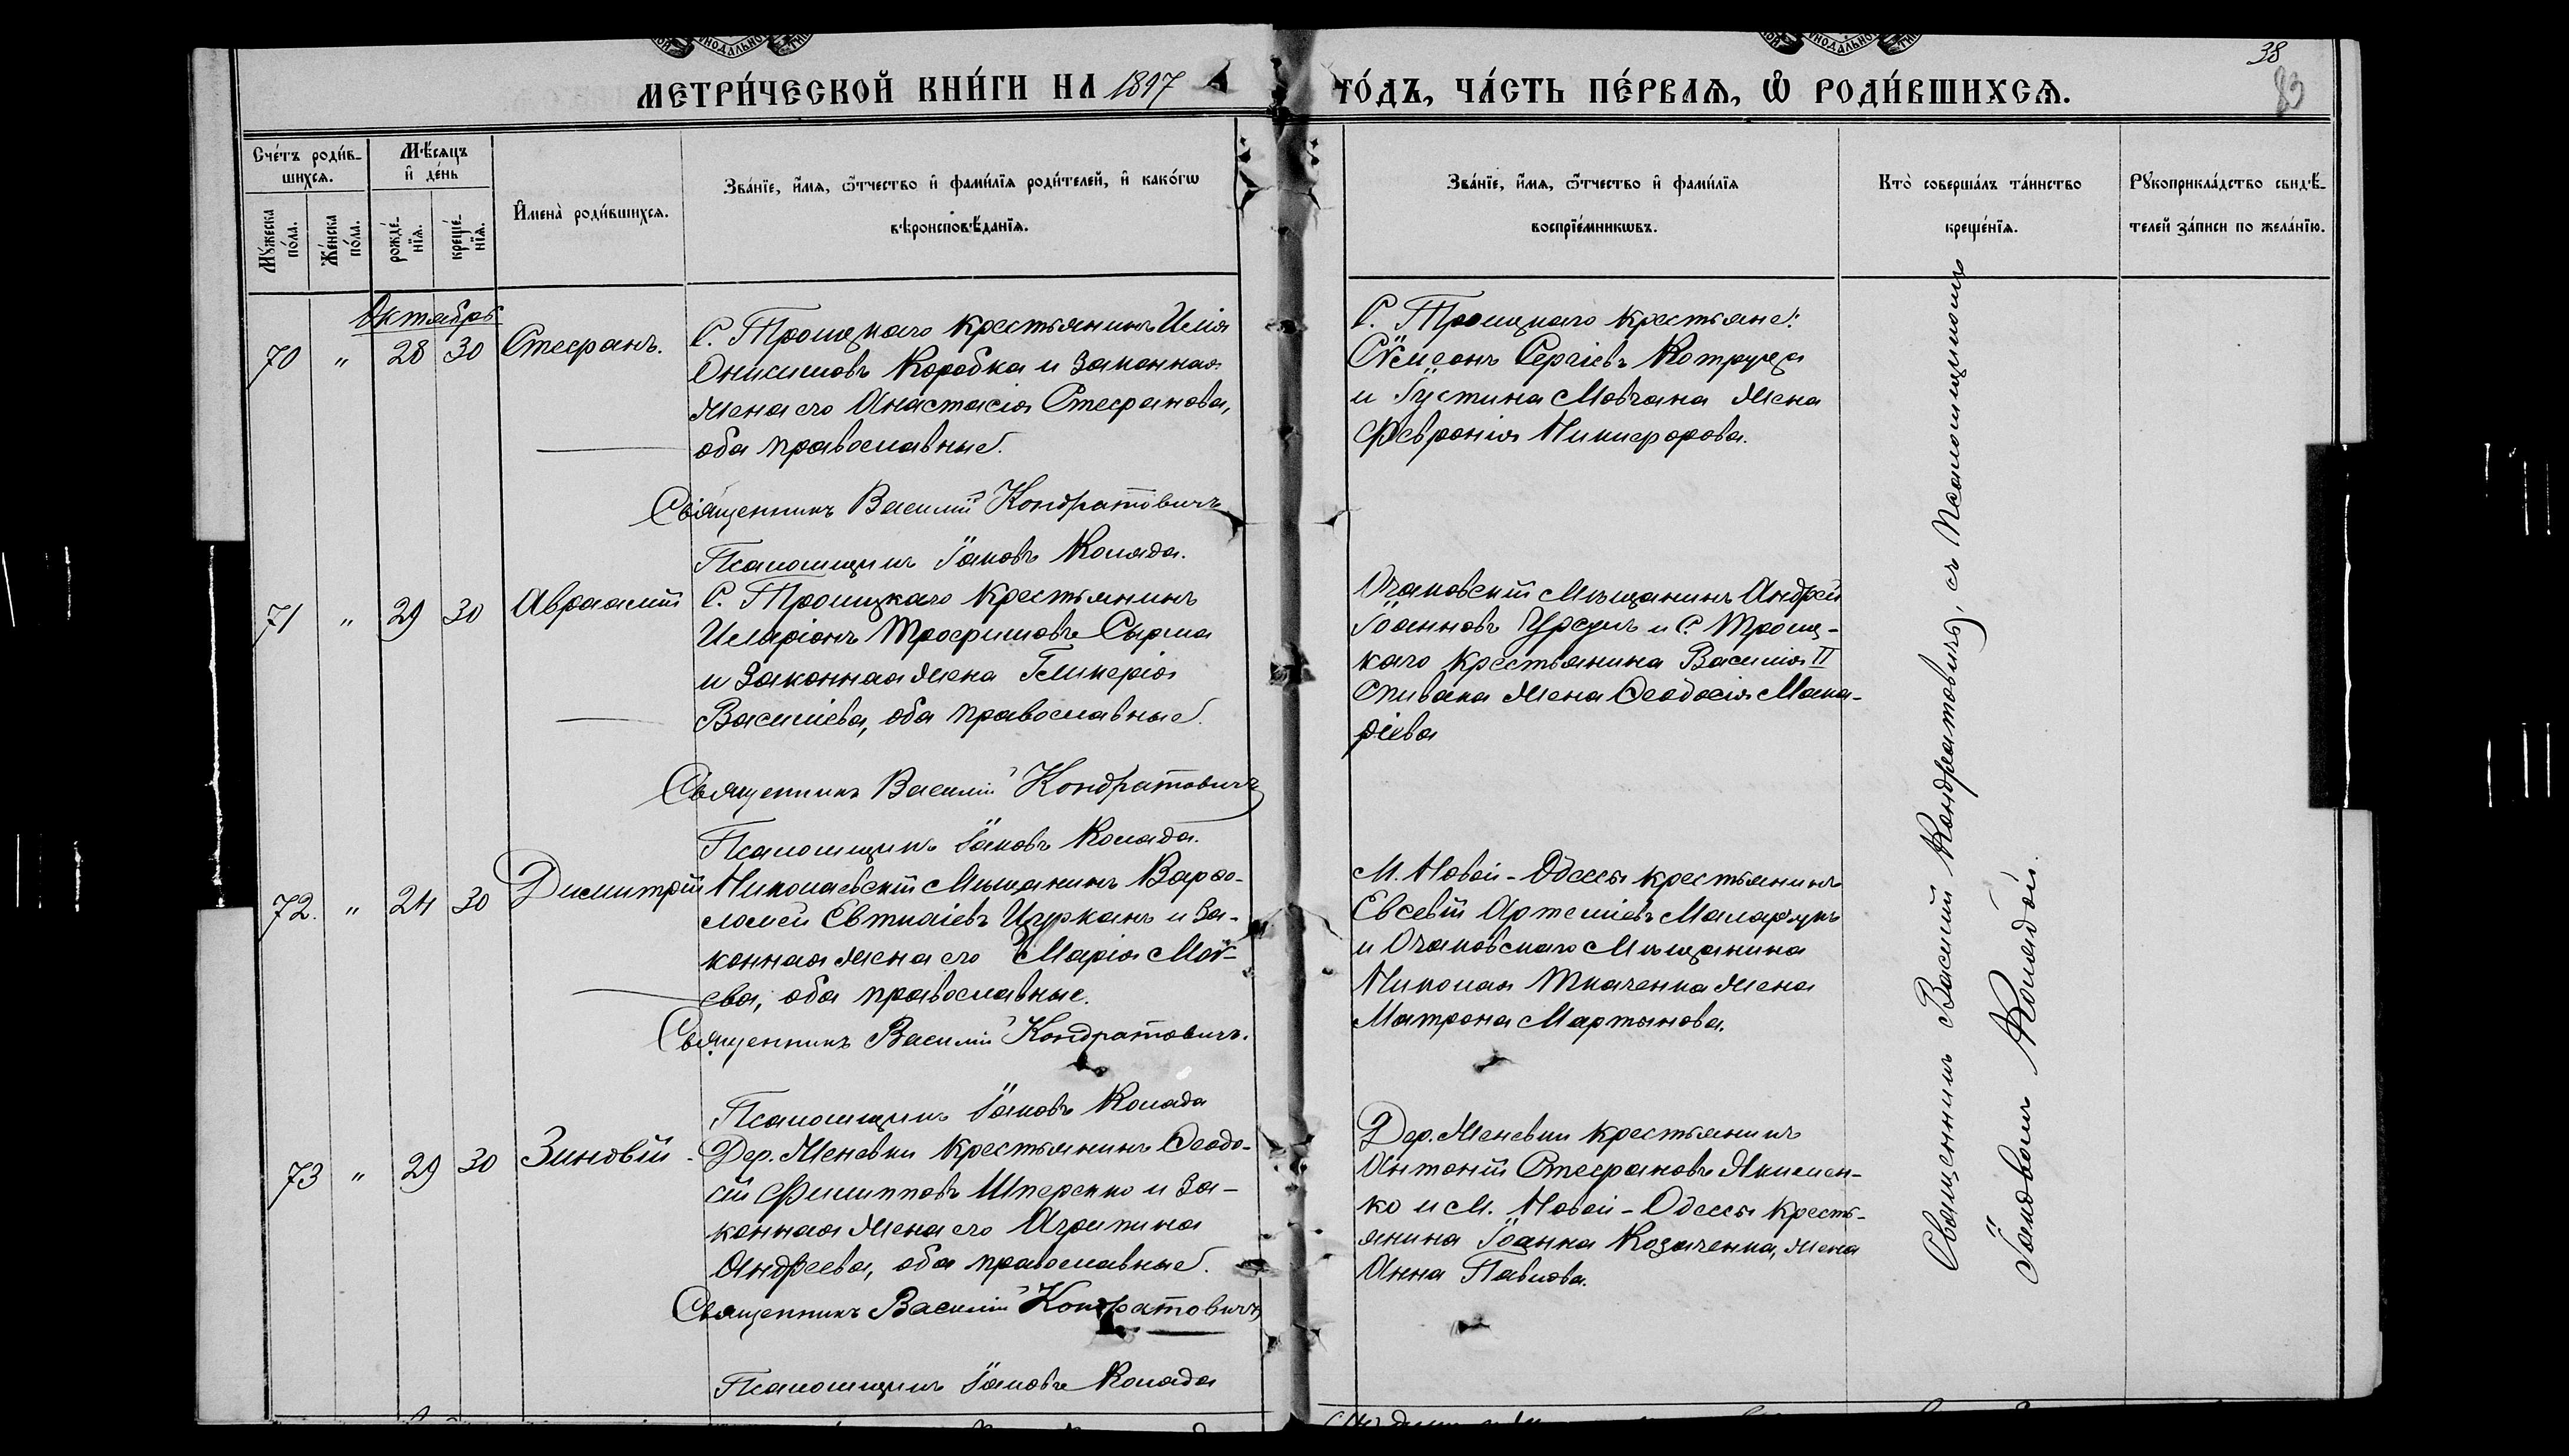 38
83
МЕТРИ́ЧЕСКОЙ КНИ́ГИ НА 1897
ГО́ДЪ, ЧА́СТЬ ПЕ́РВАѦ, Ѡ РОДИ́ВШИХСѦ.
Сче́тъ роди́в-
шихсѧ.
Мѣ́сѧцъ
и҆ де́нь
Му́жеска
по́ла.
Же́нска
по́ла.
рожде́-
нїѧ.
креще́-
нїѧ.
И҆мена̀ роди́вшихсѧ.
Зва́нїе, и҆́мѧ, ѻ҆́тчество и҆ фами́лїѧ роди́телей, и҆ како́гѡ
вѣроисповѣ́данїѧ.
Зва́нїе, и҆́мѧ, ѻ҆́тчество и҆ фами́лїѧ
воспрїе́мникѡвъ.
Кто̀ соверша́лъ та́инство
креще́нїѧ.
Рꙋкоприкла́дство свидѣ́-
телей за́писи по жела́нїю.
Октябрь
70 " 28 30 Стефанъ.
С. Троицкаго крестьянинъ Илія
Онисимовъ Коробка и законная
жена его Анастасія Стефанова,
оба православные.
Священникъ Василій Кондратовичъ
Псаломщикъ Іаковъ Колада.
С. Троицкаго крестьяне:
Сѵмеонъ Сергіевъ Котруца
и Іустина Мовчана жена
Февронія Никифорова.
71 " 29 30 Авраамій
С. Троицкаго крестьянинъ
Иларіонъ Трофимовъ Сырма
и законная жена Гликерія
Василіева, оба православные.
Священникъ Василій Кондратовичъ
Псаломщикъ Іаковъ Колада.
Очаковскій мѣщанинъ Андрей
Іоанновъ Урсулъ и С. Троиц-
каго крестьянина Василія II
Спивака жена Ѳеодосія Мака-
ріева
72. " 24 30 Димитрій
Николаевскій мѣщанинъ Варѳо-
ломей Евтихіевъ Цурканъ и за-
конная жена его Марія Мои-
сева, оба православные.
Священникъ Василій Кондратовичъ.
Псаломщикъ Іаковъ Колада
М. Новой-Одессы крестьянинъ
Евсевій Артеміевъ Маларчукъ
и Очаковскаго мѣщанина
Николая Ткаченка жена
Матрона Мартынова.
73 " 29 30 Зиновій
Дер. Женевки крестьянинъ Ѳеодо-
сій Филипповъ Шперенко и за-
конная жена его Агрипина
Андреева, оба православные.
Священникъ Василій Кондратовичъ
Псаломщикъ Іаковъ Колада
Дер. Женевки крестьянинъ
Антоній Стефановъ Якимен-
ко и М. Новой-Одессы кресть-
янина Іоанна Козаченка, жена
Анна Павлова.
Священникъ Василій Кондратовичъ, съ Псаломщикомъ
Іаковомъ Коладой.